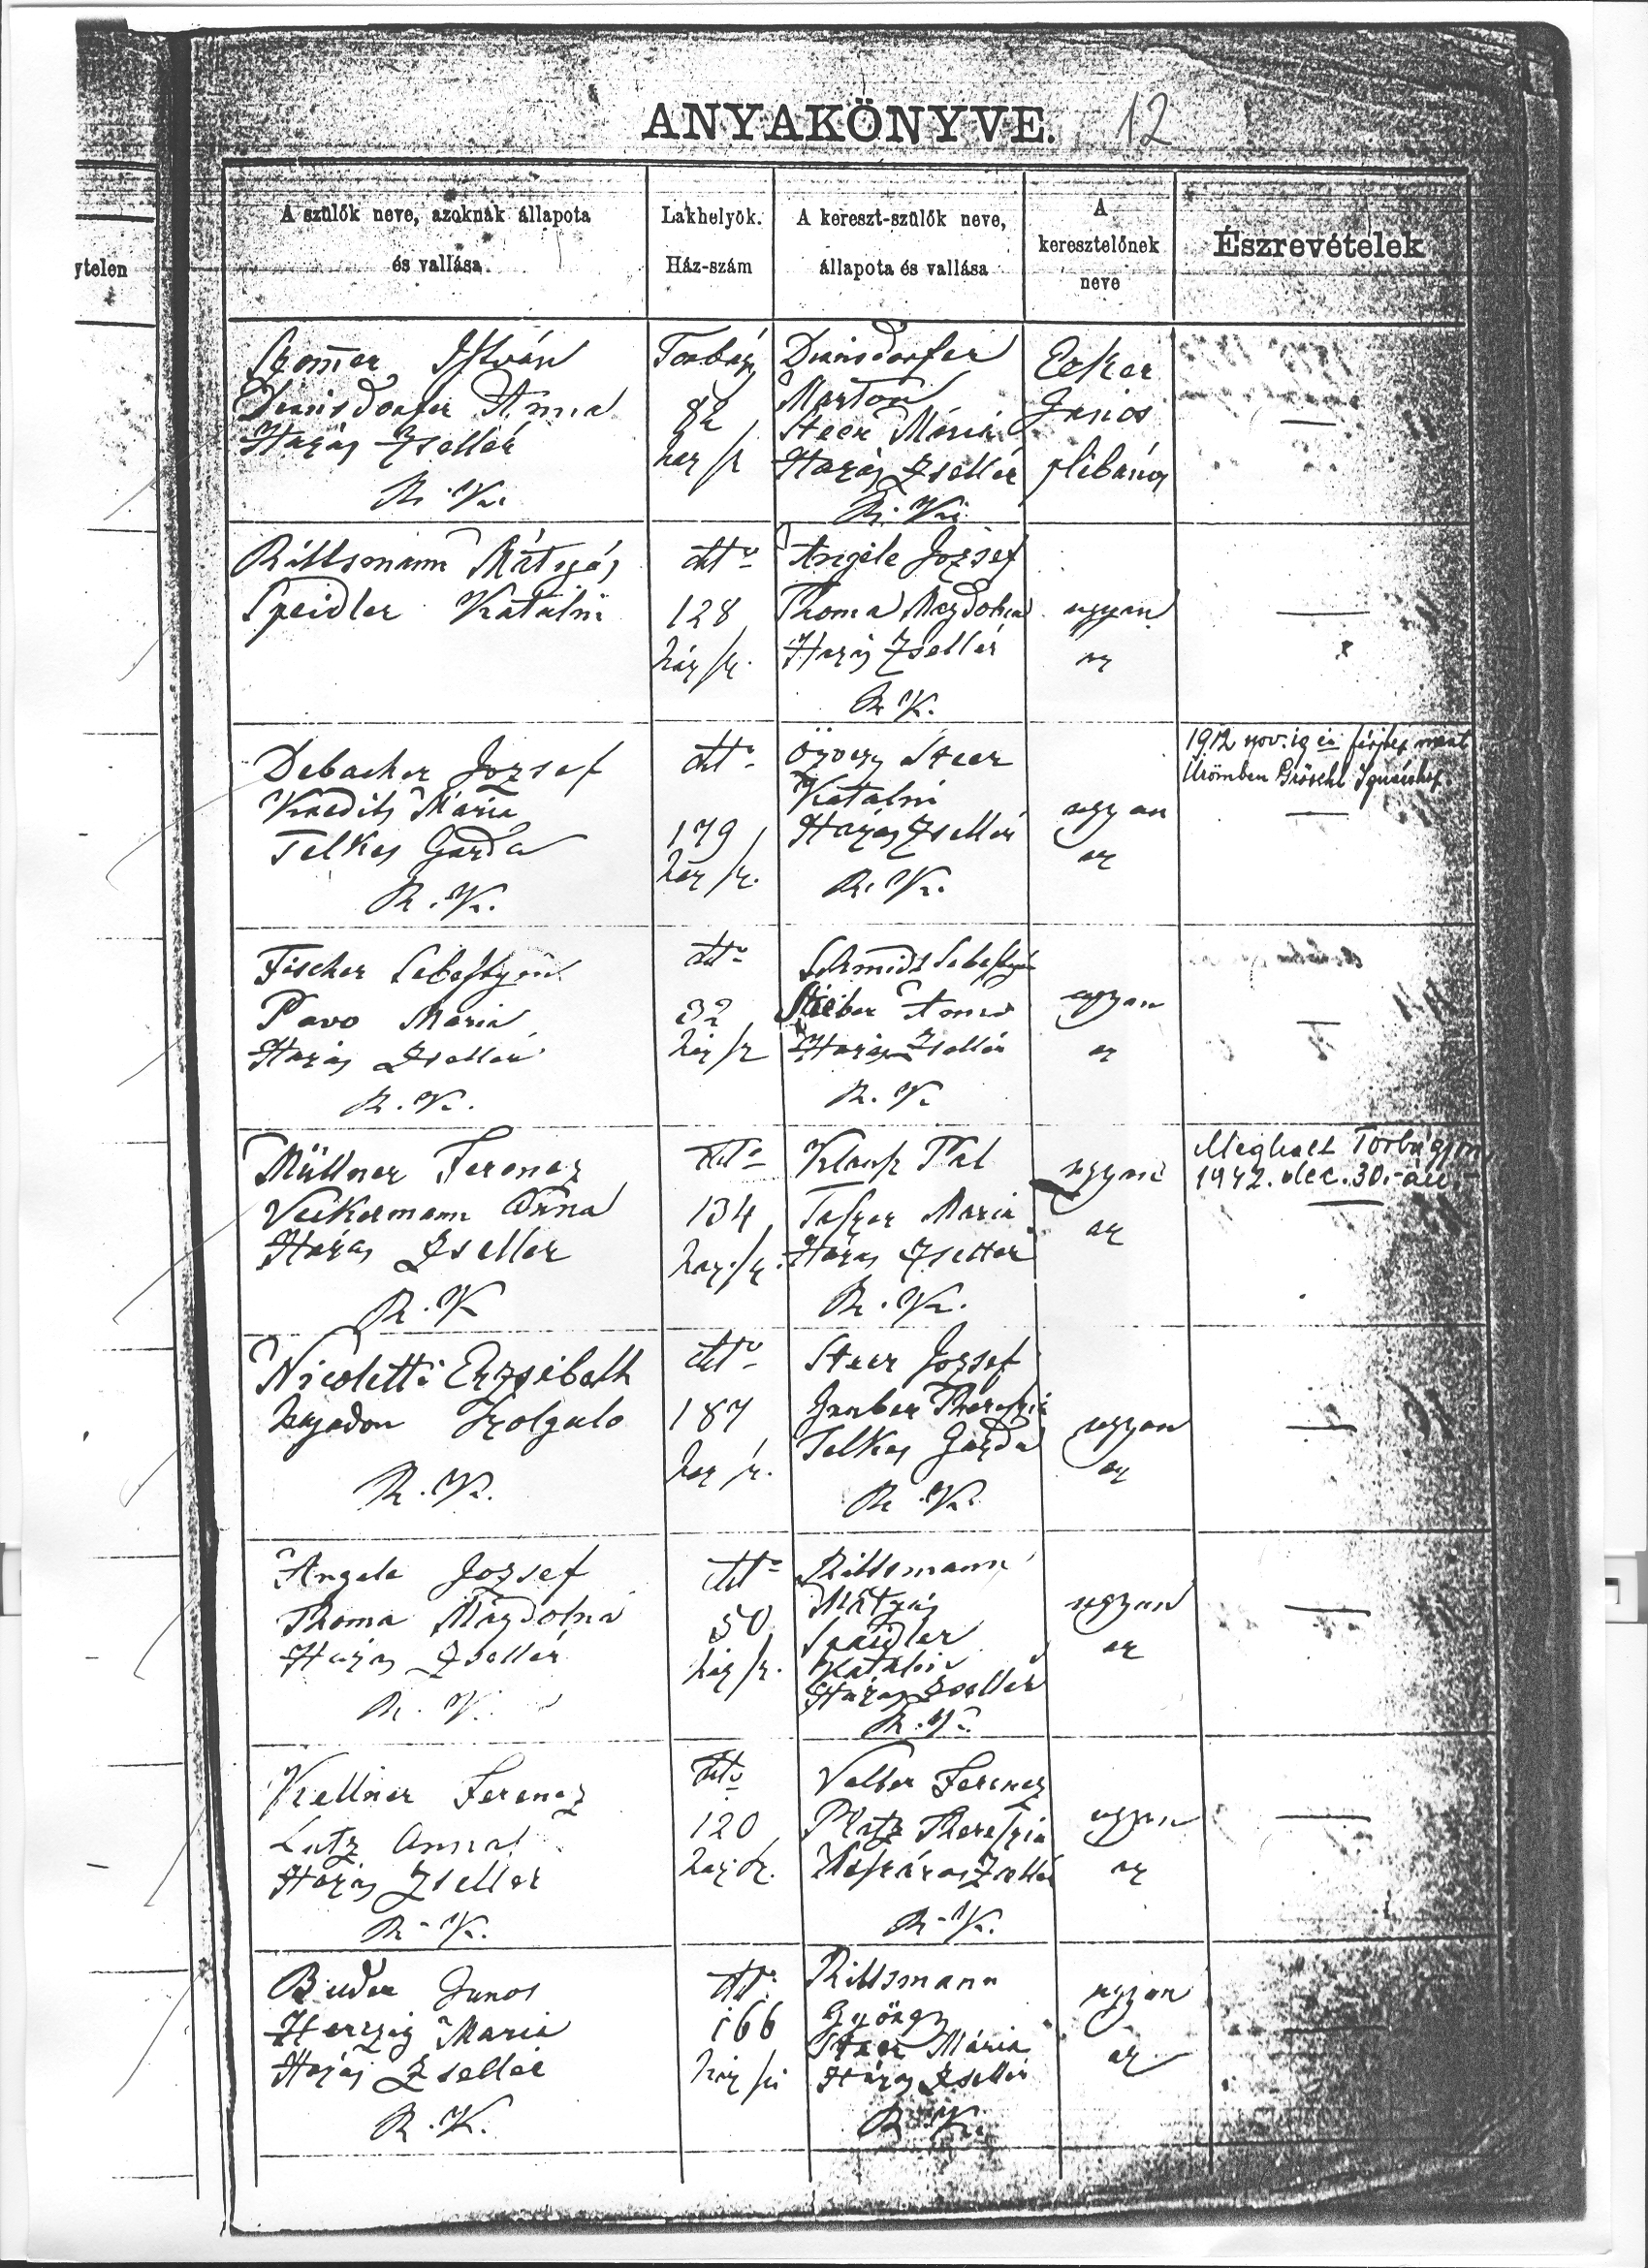 ANYAKÖNYVE. 12
ytelen
A szülők neve, azoknak állapota
és vallása.
Lakhelyök.
Ház-szám
A kereszt-szülők neve,
állapota és vallása
A
keresztelőnek
neve
Észrevételek
István
Anna
Házas Zsellér
R. K.
82
ház sz
Márton
Steer Mária
Házas Zsellér
R. K.
János
plébános
Rittsmann Mátyás
Speidler Katalin
dtto
128
ház sz.
Angele József
Thoma Magdolna
Házas Zsellér
R. K.
ugyan
az
Debacher József
Mária
Telkes Gazda
R. K.
dtto
179
ház sz.
Özvegy Steer
Katalin
Házas Zsellér
R. K.
ugyan
az
1912 nov. ig én férjhez ment
Ürömben Gröschl Ignáchoz.
Fischer Sebestyén
Mária
Házas Zsellér
R. K.
dtto
32
ház sz
Schmidt Sebestyén
Anna
Házas Zsellér
R. K.
ugyan
az
Müllner Ferencz
Anna
Házas Zseller
R. K
dtto
134
ház sz.
Pál
Maria
Házas Zseller
R. K.
ugyan
az
Meghalt Torbágyon
1942. dec. 30.-án.-
Nicoletti Erzsébeth
hajadon Szolgáló
R. K.
dtto
187
ház sz.
Steer József
Telkes Gazda
R. K.
ugyan
az
Angele József
Thoma Magdolna
Házas Zsellér
R. K.
dtto
50
ház sz.
Rittsmann
Mátyás
Speidler
Katalin
Házas Zsellér
R. K.
ugyan
az
Kellner Ferencz
Lutz Anna
Házas Zseller
R. K.
dtto
120
ház sz.
Ferencz
Platz Theresia
R. K.
ugyan
az
János
Herczig Maria
Házas Zsellér
R. K.
dtto
166
ház sz
Rittsmann
György
Steer Mária
Házas Zsellér
R. K.
ugyan
az